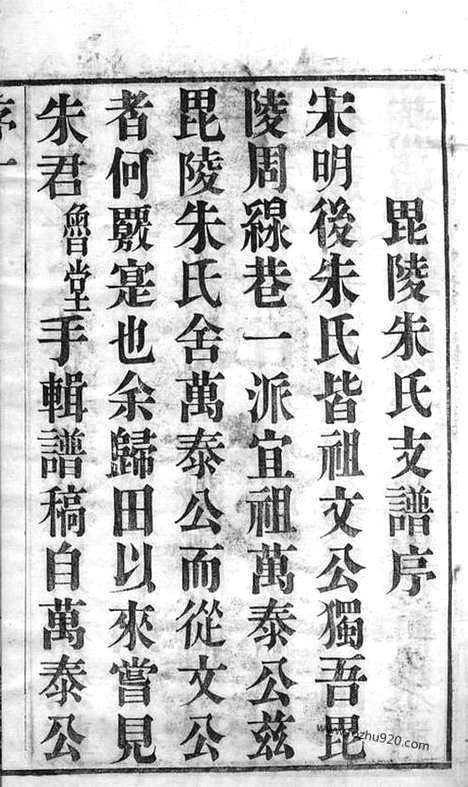 毘陵朱氏支譜序
宋明後朱氏皆祖文公獨吾毘
陵周線巷一派宜祖萬泰公茲
毘陵朱氏舍萬泰公而從文公
者何覈寔也余歸田以來嘗見
朱君魯堂手輯譜稿自萬泰公
序一